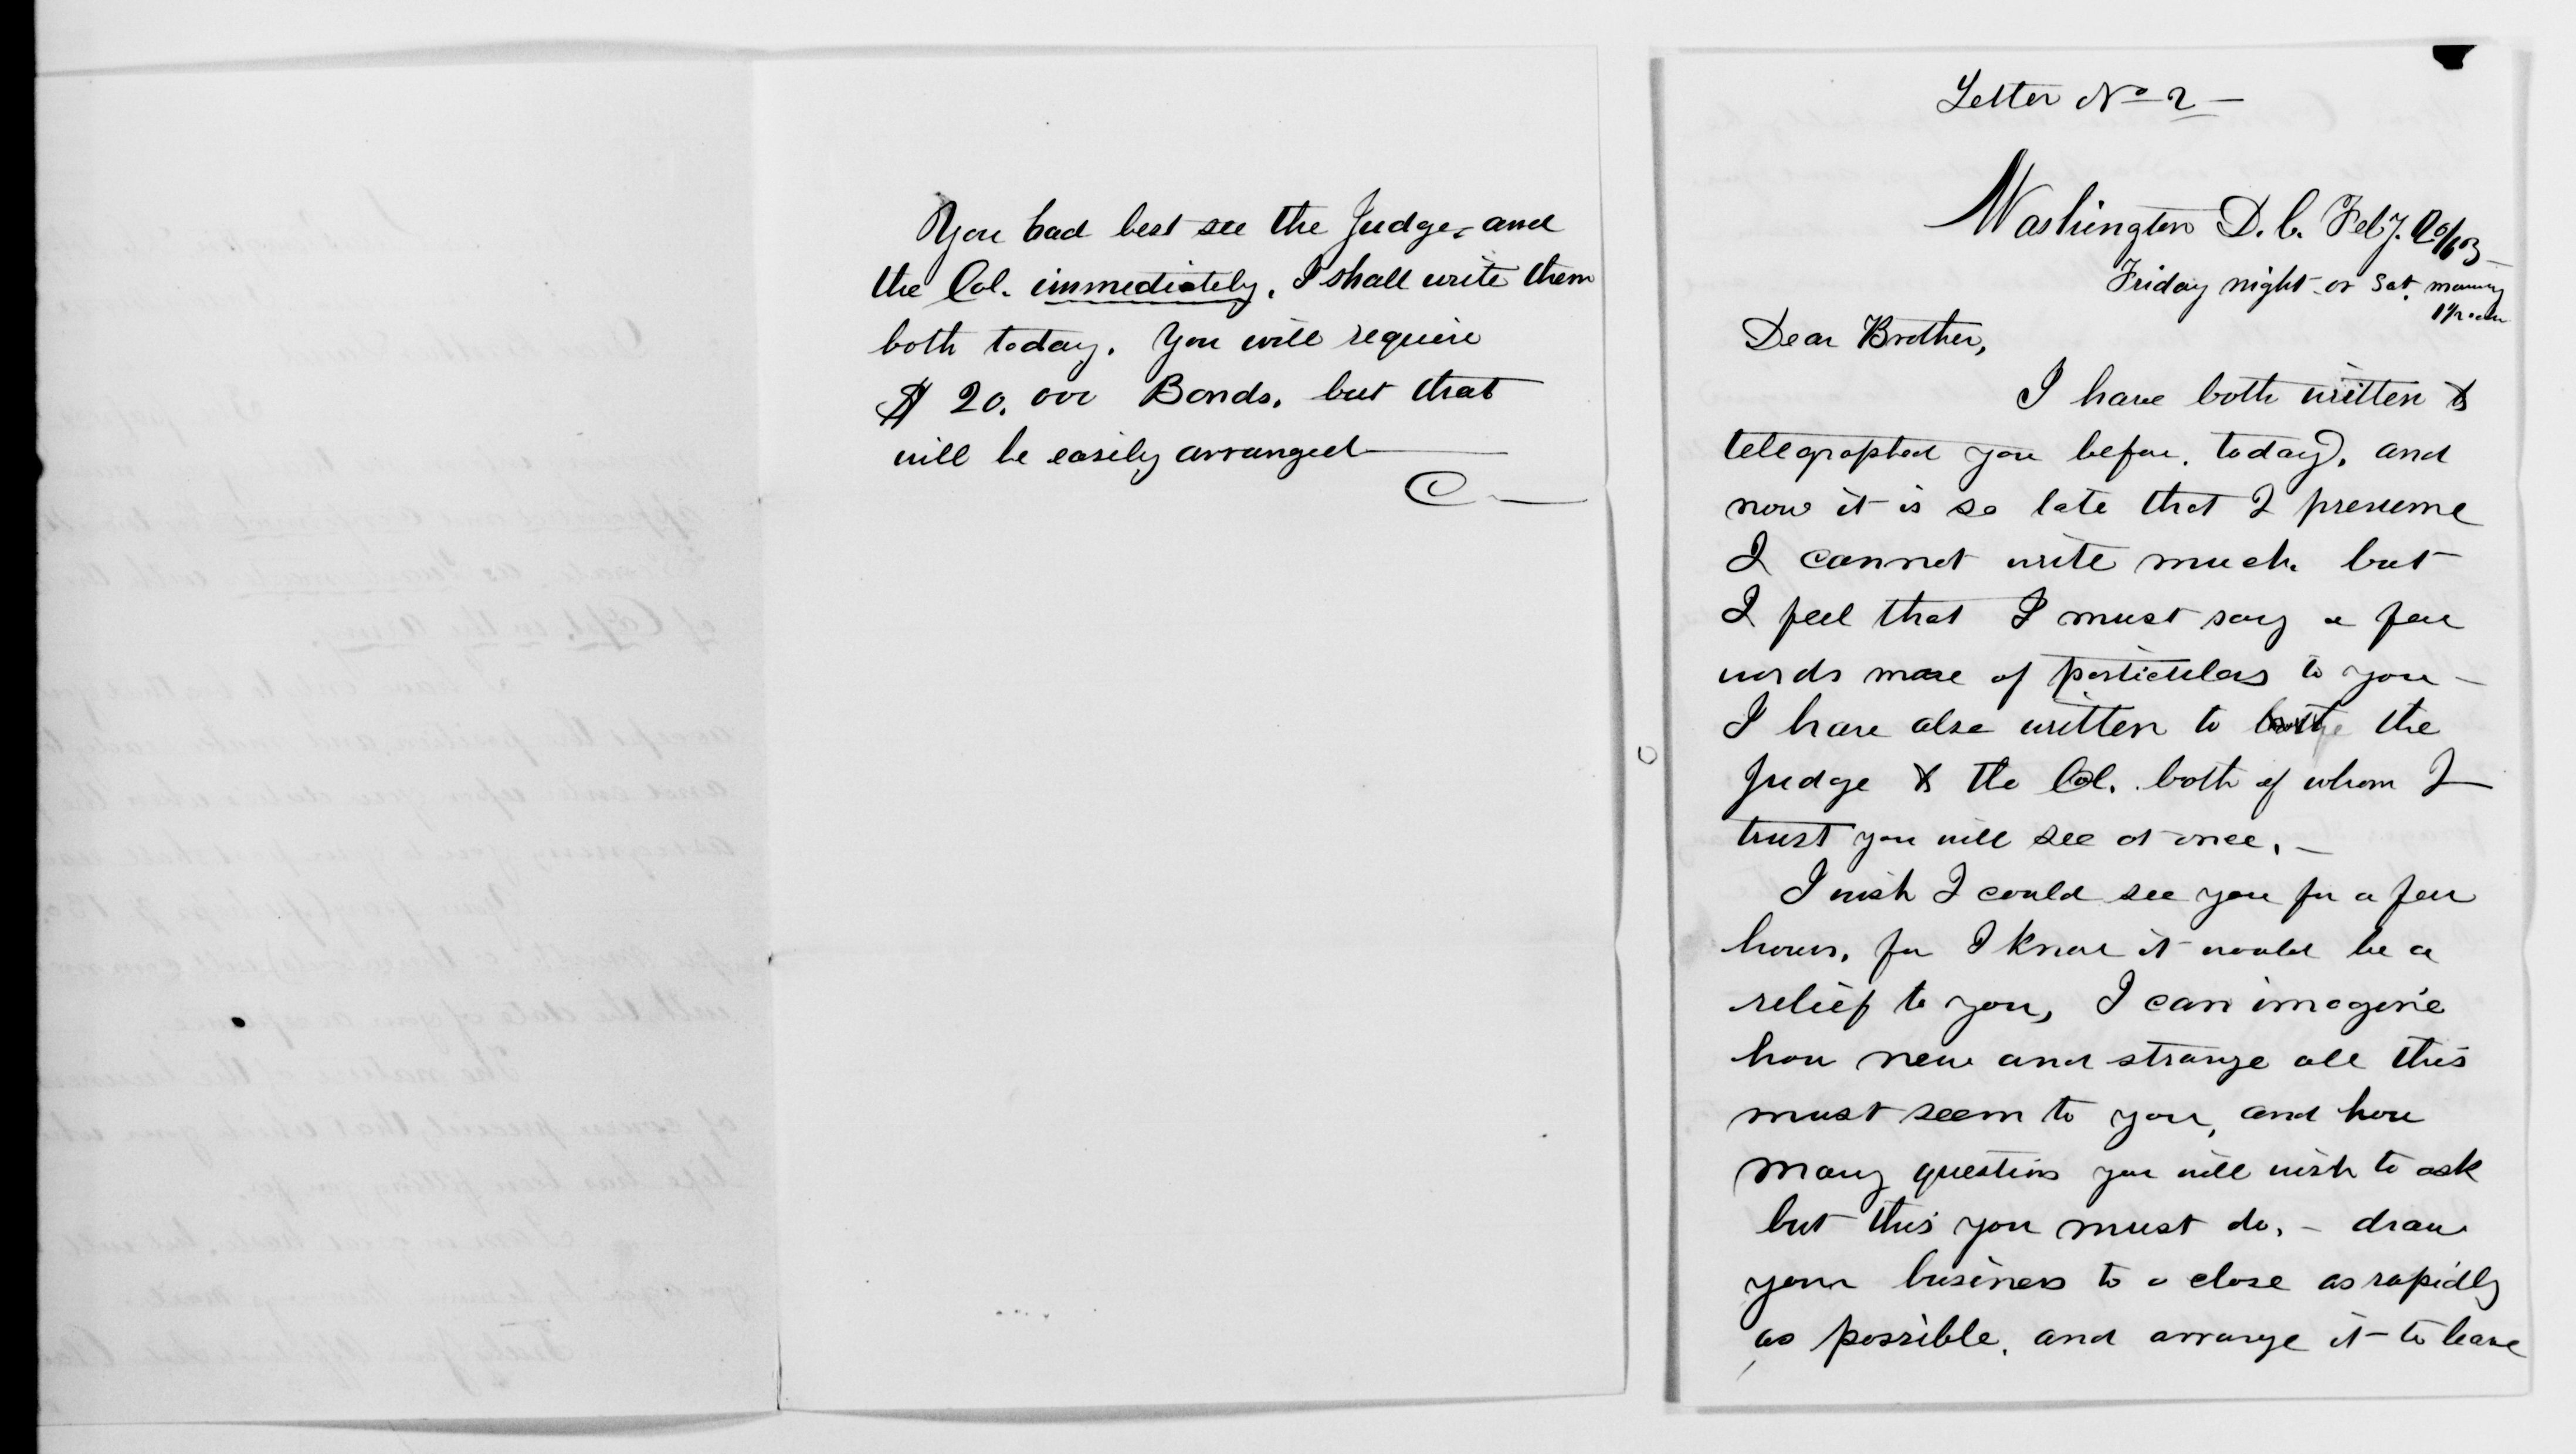 You had best see the Judge, and
the Col. immediately, I shall write them
both today. You will require
$20,000 Bonds, but that
will be easily arranged
C
Letter No 2
Washington D.C. Feby. 20/63
Friday night or Sat. morning
Dear Brother,
I have both written &
telegraphed you before, today, and
now it is so late that I presume
I cannot write much but
I feel that I must say a few
words more of particulars to you
I have also written to the
Judge & the Col. both of whom I
trust you will see at once.
I wish I could see you for a few
hours, for I know it would be a
relief to you, I can imagine
how new and strange all this
must seem to you, and how
many questions you will wish to ask
but this you must do, - draw
your business to a close as rapidly
as possible, and arrange it to leave